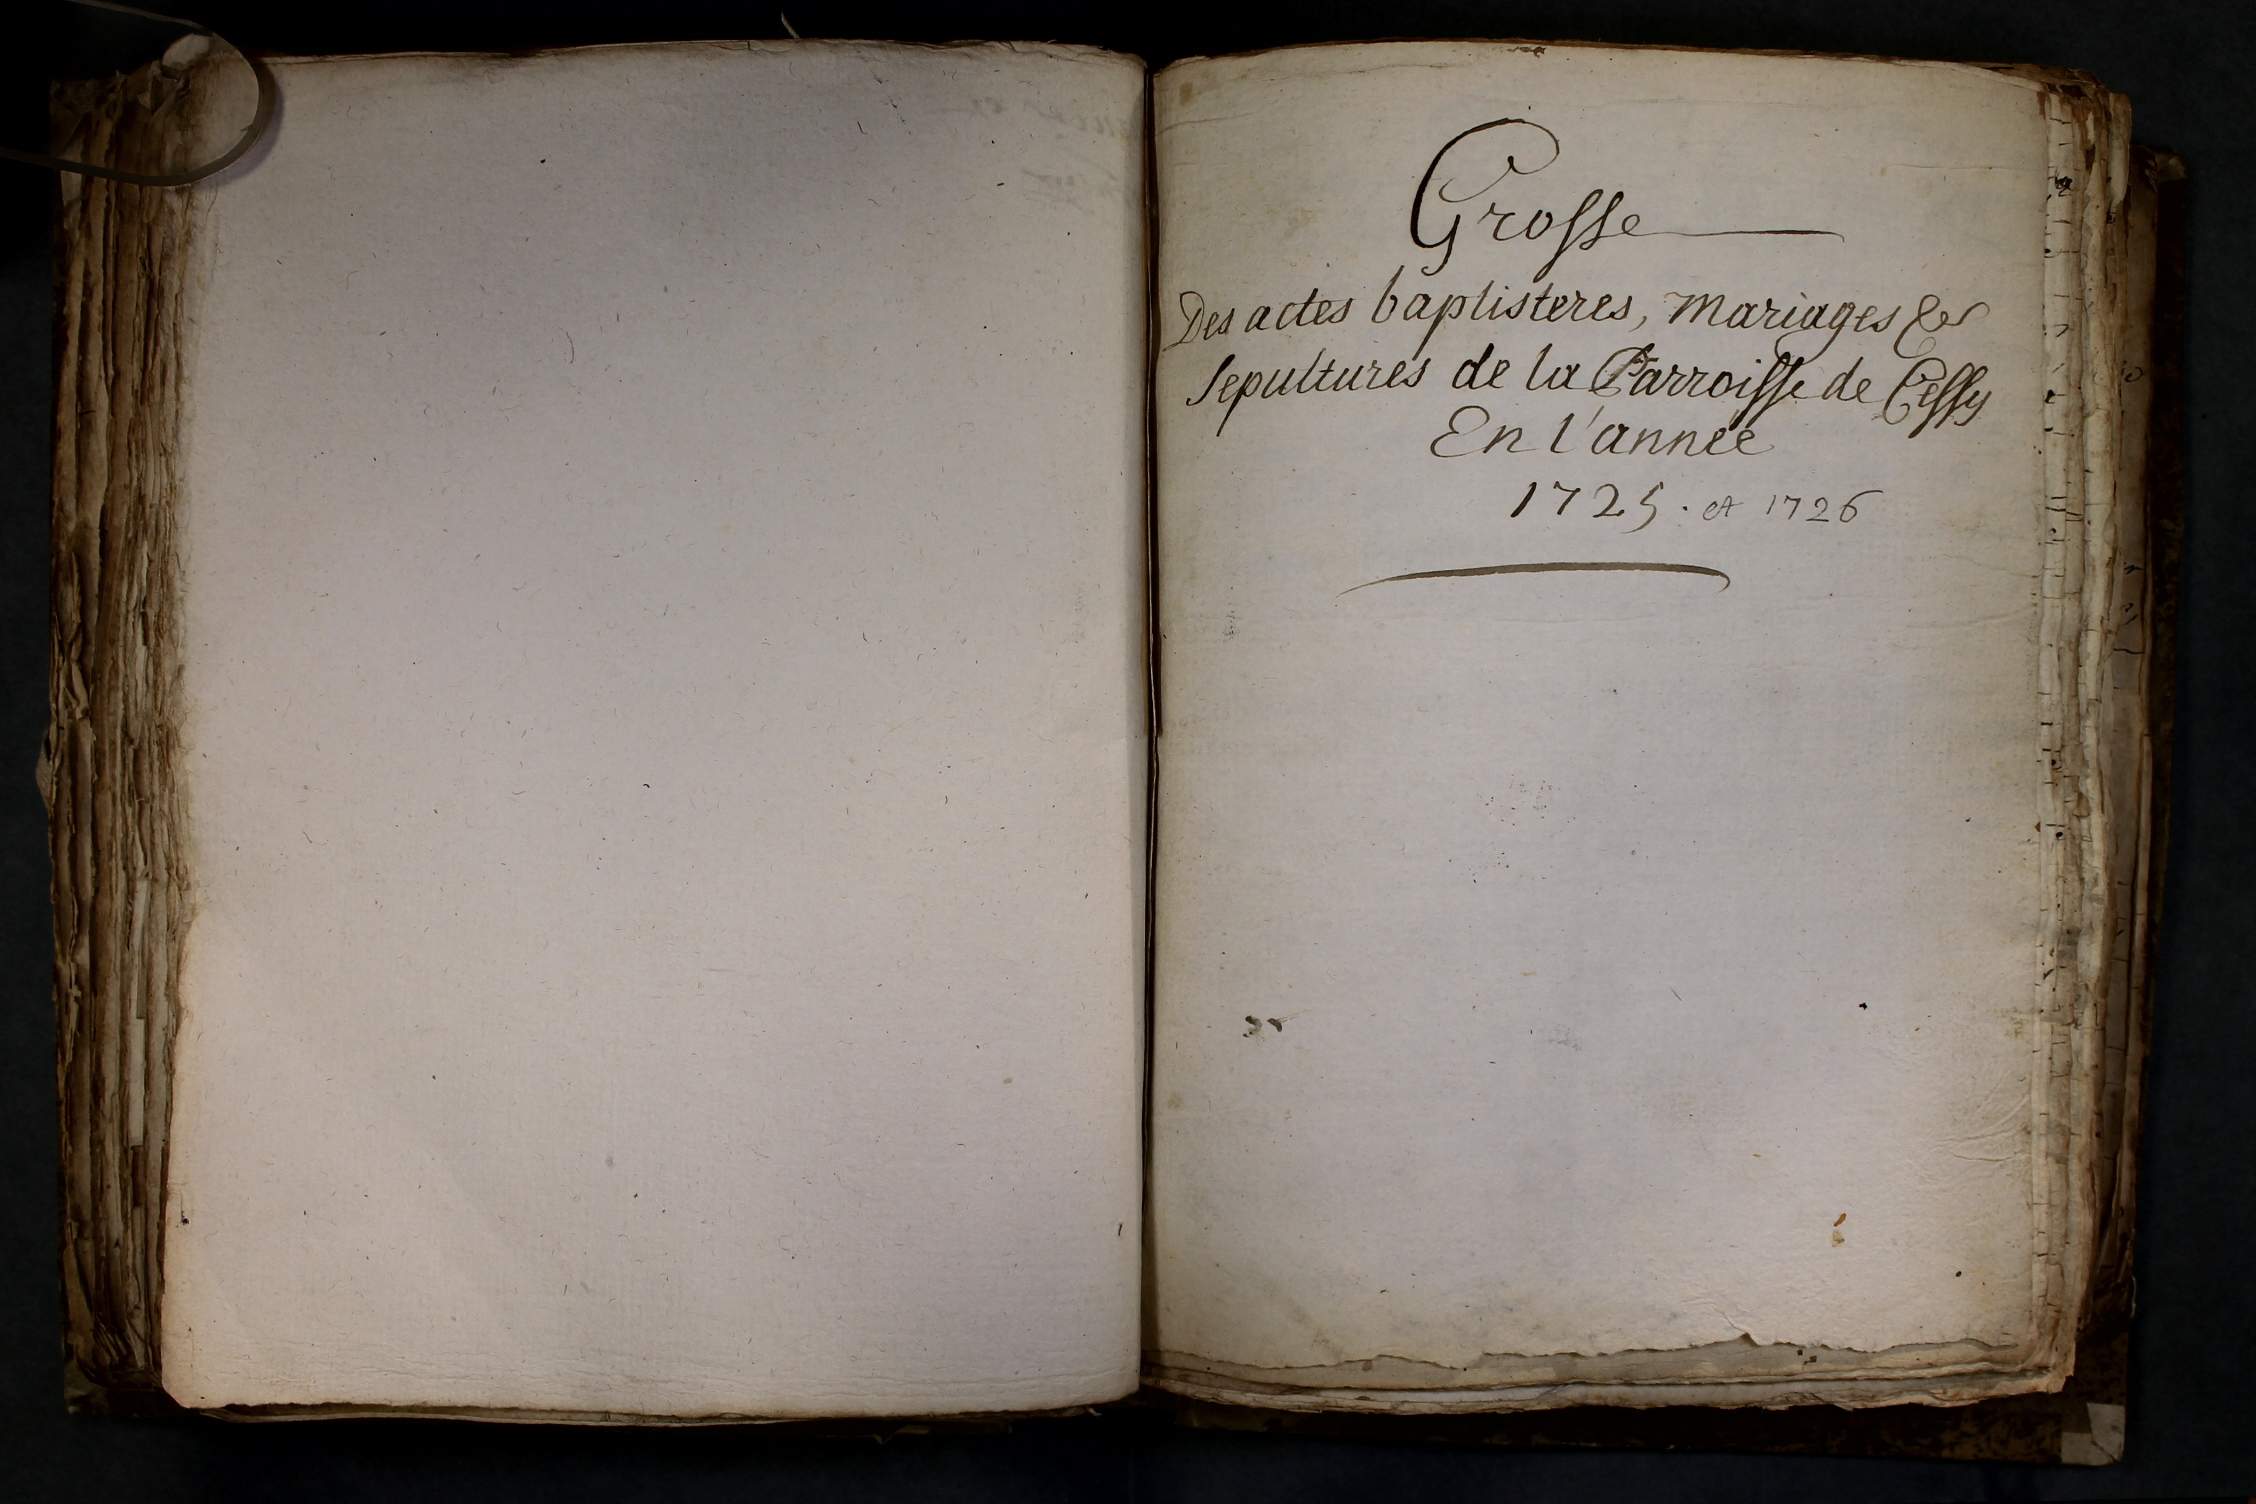 Grosse
Des actes baptisteres, mariages &
sepultures de la Parroisse de Cessy
En l'année
1725. et 1726